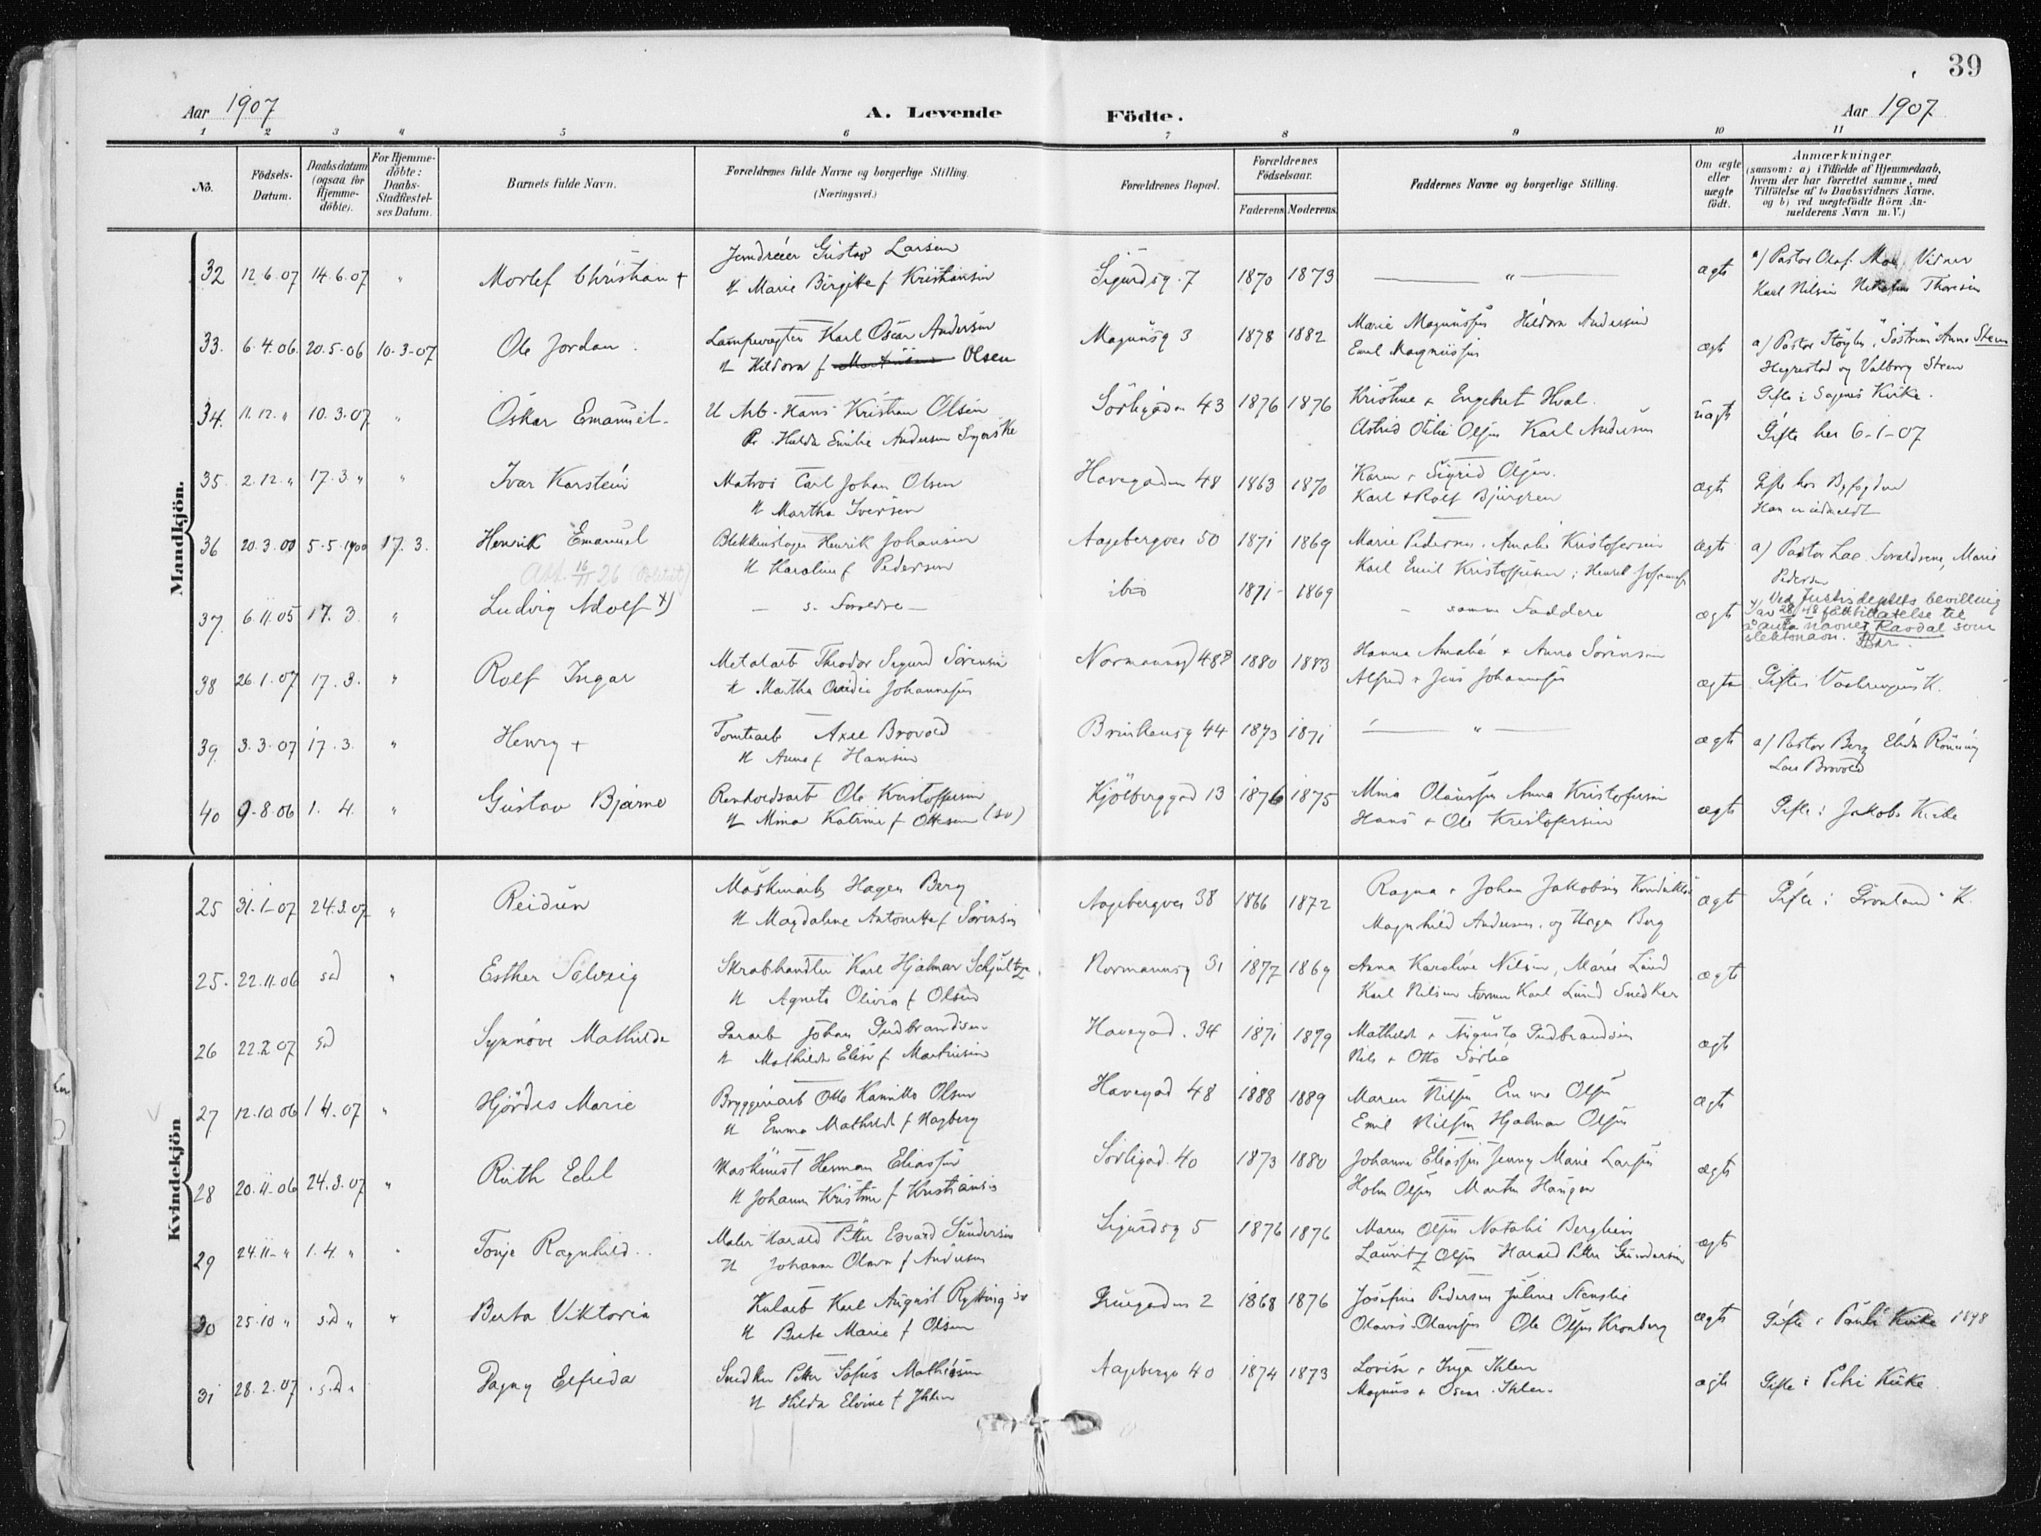 39
Aar 1907
A. Levende Födte.
Aar 1907
1 2 3 4 5 6 7 8 9 10 11
No.
Födsels-Datum.
Daabsdatum (ogsaa for Hjemmedöbte).
For Hjemmedöbte: Daabs-Stadfæstelses Datum.
Barnets fulde Navn.
Forældrenes fulde Navne og borgerlige Stilling. (Næringsvei.)
Forældrenes Bopæl.
Forældrenes Födselsaar.
Faderens. Moderens.
Faddernes Navne og borgerlige Stilling.
Om ægte eller uægte födt.
Anmærkninger
(saasom: a) i Tilfælde af Hjemmedaab, hvem der har forrettet samme, med Tilföielse af to Daabsvidners Navne, og b) ved uægtefödte Börn Anmelderens Navn m. V.)
Mandkjön.
32 12.6.07 14.6.07 " Morlef Christian +
Gustav Larsen
u Marie Birgitte f Kristiansen
Sigurdsg. 7 1870 1873 " ægte
a) Pastor Olaf Moe, Vidner
Karl Nilsen Thoresen
33. 6.4.06 20.5.06 10.3.07 Ole Jordan.
Lampevagter Karl Oscar Andersen
u Hildora f Olsen
Magnusg 3 1878 1882
Marie Magnussen Hildora Andersen
Emil Magnussen
ægt
a) Pastor Anna Steen
Hegrestad og Valborg Steen
Gifte i Sagenes Kirke.
34. 11.12. " 10.3.07 " Oskar Emanuel.
U Arb. Hans Kristian Olsen
Pr. Hulda Emilie Andersen
Sörligaden 43 1876 1876
Kristine & Engebret Hval.
Astrid Otilie Olsen Karl Andersen
uægt
Gifte her 6-1-07
35. 2.12. " 17.3 " " Ivar Karstein
Matros Carl Johan Olsen
u Martha Iversen
Havegaden 48 1863 1870
Karen & Sigrid Olsen.
Karl & Rolf Bjürgren
ægte
Gifte hos Byfogden
Han er udmeldt
36 20.3.00 5.5.1900 17.3. Henrik Emanuel
Blikkenslager Henrik Johansen
u Karoline f Pedersen
Aagebergvei 50 1871 1869
Marie Pedersen, Amalie Kristofersen
Karl Emil Kristoffersen; Henrik Johansen
ægte
a) Pastor Lae Forældrene, Marie
Pedersen
Att. 16/11 26
37. 6.11.05 17.3. " Ludvig Adolf x)
— s. Forældre —
ibid 1871- 1869
" samme Faddere
ægt
x) Ved Justisdeptets bevilling
av 28/ 48 gitt tillatelse til
å anta navnet Ravdal som
slektsnavn.
38 26.1.07 17.3. " Rolf Ingar
Metalarb Theodor Sigurd Sörensen
u Martha Ovidia Johannesen
Normannsgd 48B 1880 1883
Hanna Amalie & Anna Sörensen
Alfred & Jens Johannesen
ægte
Gifte i Vaalerengens K.
39. 3.3.07 17.3. " Henry +
Tomtearb Axel Brovold
u Anna f Hansen
Brinkensg 44 1873 1871 " ægte
a) Pastor Berg Elida Rönning
Lars Brovold
40 9.8.06 1. 4. " Gustav Bjarne
Renholdsarb Ole Kristoffersen
u Mina Katrine f Ottesen (sv)
Kjölberggad 13 1876 1875
Mina Olaussen Anna Kristofersen
Hans & Ole Kristofersen
ægte
Gifte i Jakobs Kirke
Kvindekjön
25 31.1-07 24.3.07 " Reidun
Maskinarb Hagen Berg
u Magdalene Antonette f Sörensen
Aagebergvei 38 1866 1872
Ragna & Johan Jakobsen Konduktör
Magnhild Andersen. og Hagen Berg
ægte
Gifte i Grönlands K.
25. 22.11.06 sd " Esther Solveig
Skrabhandler Karl Hjalmar Schjultze
u Agneta Olivia f Olsen
Normannsg 31 1877 1869
Anna Karoline Nilsen, Marie Lund
Karl Nilsen Karl Lund Snedker
ægte
26 22.2 07 sd Synnöve Mathilde
Johan Gudbrandsen
u Mathilde Elise f Martinsen
Havegad. 34 1871 1879
Mathilde & Augusta Gudbrandsen
Nils & Otto Sörlie
ægt
27 12.10.06 1 4.07 " Hjördis Marie
Bryggeriarb Otto Kamillo Olsen
u Emma Mathilde f Hagberg
Havegad 48 1888 1889
Maren Nilsen Emma Olsen
Emil Nilsen Hjalmar Olsen
ægte
28 20.11.06 24.3.07 " Ruth Edel
Maskinist Herman Eliassen
u Johanne Kristine f Kristiansen
Sörligad. 40 1873 1880
Johanne Eliassen Jenny Marie Larsen
Holm Olsen Martin Haugen
ægte
29 24.11- " 1.4 " " Tonje Ragnhild.
Maler Harald Petter Edvard Gundersen
u Johanne f Andersen
Sigurdsg 5 1876 1876
Maren Olsen Natalie Berglien
Lauritz Olsen Harald Petter Gundersen
ægt
30 25.10 " sd " " Berta Viktoria
Kularb Karl August Rytting sv
u Berte Marie f Olsen
Gruegaden 2 1868 1876
Josefine Pedersen Juline Stenslie
Olavus Olaussen Ole Olsen Kronberg
ægte
Gifte i Pauls Kirke 1898
31 28.2.07 sd " Dagny Elfrida
Snedker Petter Sofus Mathisen
u Hilda Elvine f Ihlen
Aagebergv 40 1874 1873
Lovise & Inga Ihlen
Magnus & Oscar Ihlen
ægte
Gifte i Petri Kirke